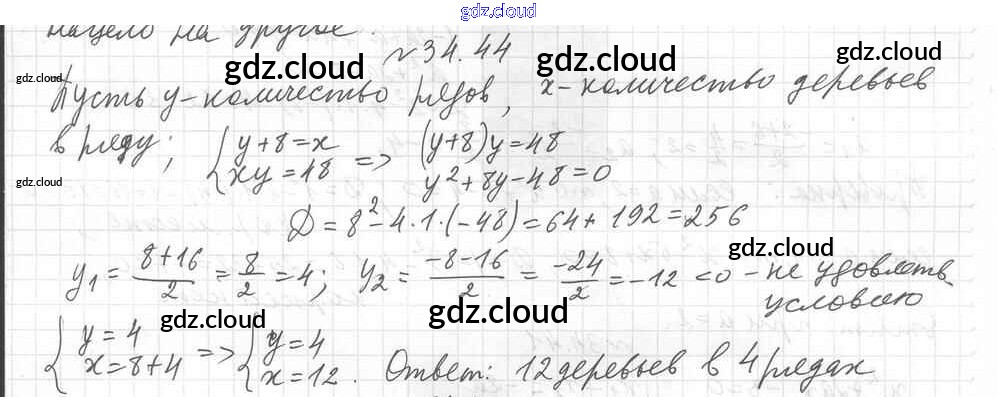 gdz.cloud
нацело на другое.
№34.44
gdz.cloud gdz.cloud
gdz.cloud
Пусть y-количество рядов, x-количество деревьев
в ряду; { y+8=x => (y+8)y=48
xy=48 y²+8y-48=0
gdz.cloud gdz.cloud
gdz.cloud
D=8²-4·1·(-48)=64+192=256
gdz.cloud
y₁= 8+16/2 = 8/2 =4; y₂= -8-16/2 = -24/2 =-12<0 -не удовлетв.
условию
gdz.cloud gdz.cloud
{ y=4 => { y=4
x=8+4 x=12. Ответ: 12 деревьев в 4 рядах